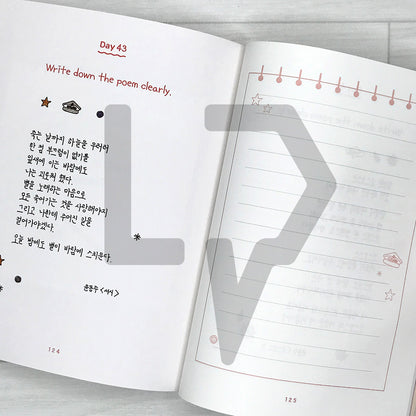 Day 43
Write down the poem clearly.
죽는 날까지 하늘을 우러러
한 점 부끄럼이 없기를
잎새에 이는 바람에도
나는 괴로워 했다.
별을 노래하는 마음으로
모든 죽어가는 것을 사랑해야지
그리고 나한테 주어진 길을
걸어가야겠다.
오늘 밤에도 별이 바람에 스치운다.
윤동주 <서시>
124
125